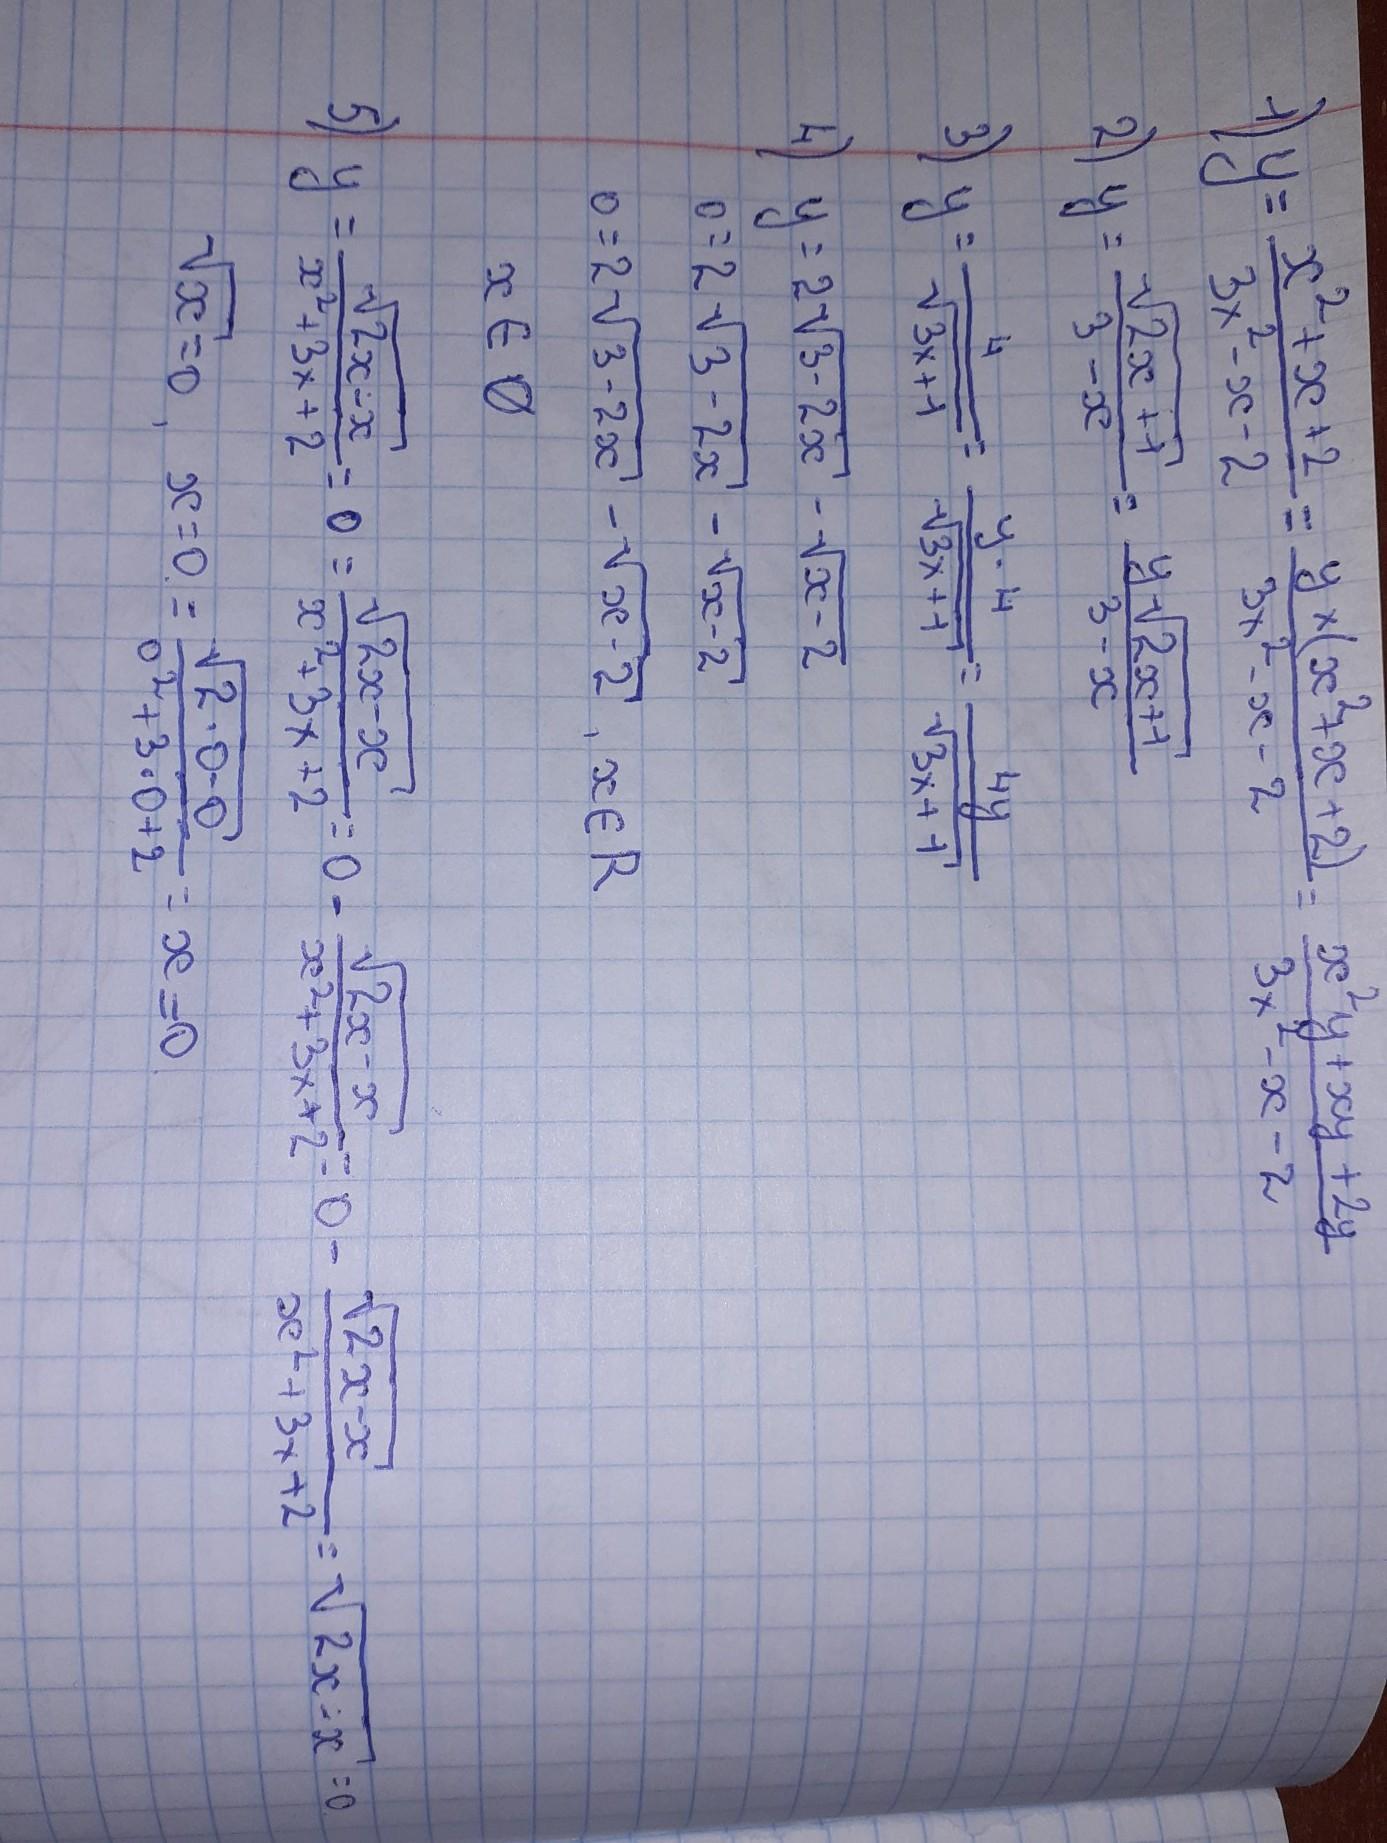 1) y = (x² + x + 2)/(3x² - x - 2) = (y × (x² + x + 2))/(3x² - x - 2) = (x²y + xy + 2y)/(3x² - x - 2)
2) y = √(2x + 1)/(3 - x) = y√(2x + 1)/(3 - x)
3) y = 4/√(3x + 1) = (y · 4)/√(3x + 1) = 4y/√(3x + 1)
4) y = 2√(3 - 2x) - √(x - 2)
0 = 2√(3 - 2x) - √(x - 2)
0 = 2√(3 - 2x) - √(x - 2), x ∈ R
x ∈ Ø
5) y = √(2x - x)/(x² + 3x + 2) = 0 = √(2x - x)/(x² + 3x + 2) = 0 - √(2x - x)/(x² + 3x + 2) = 0 - √(2x - x)/(x² + 3x + 2) = √(2x - x) = 0
√x = 0, x = 0 = √(2 · 0 - 0)/(0² + 3 · 0 + 2) = x = 0